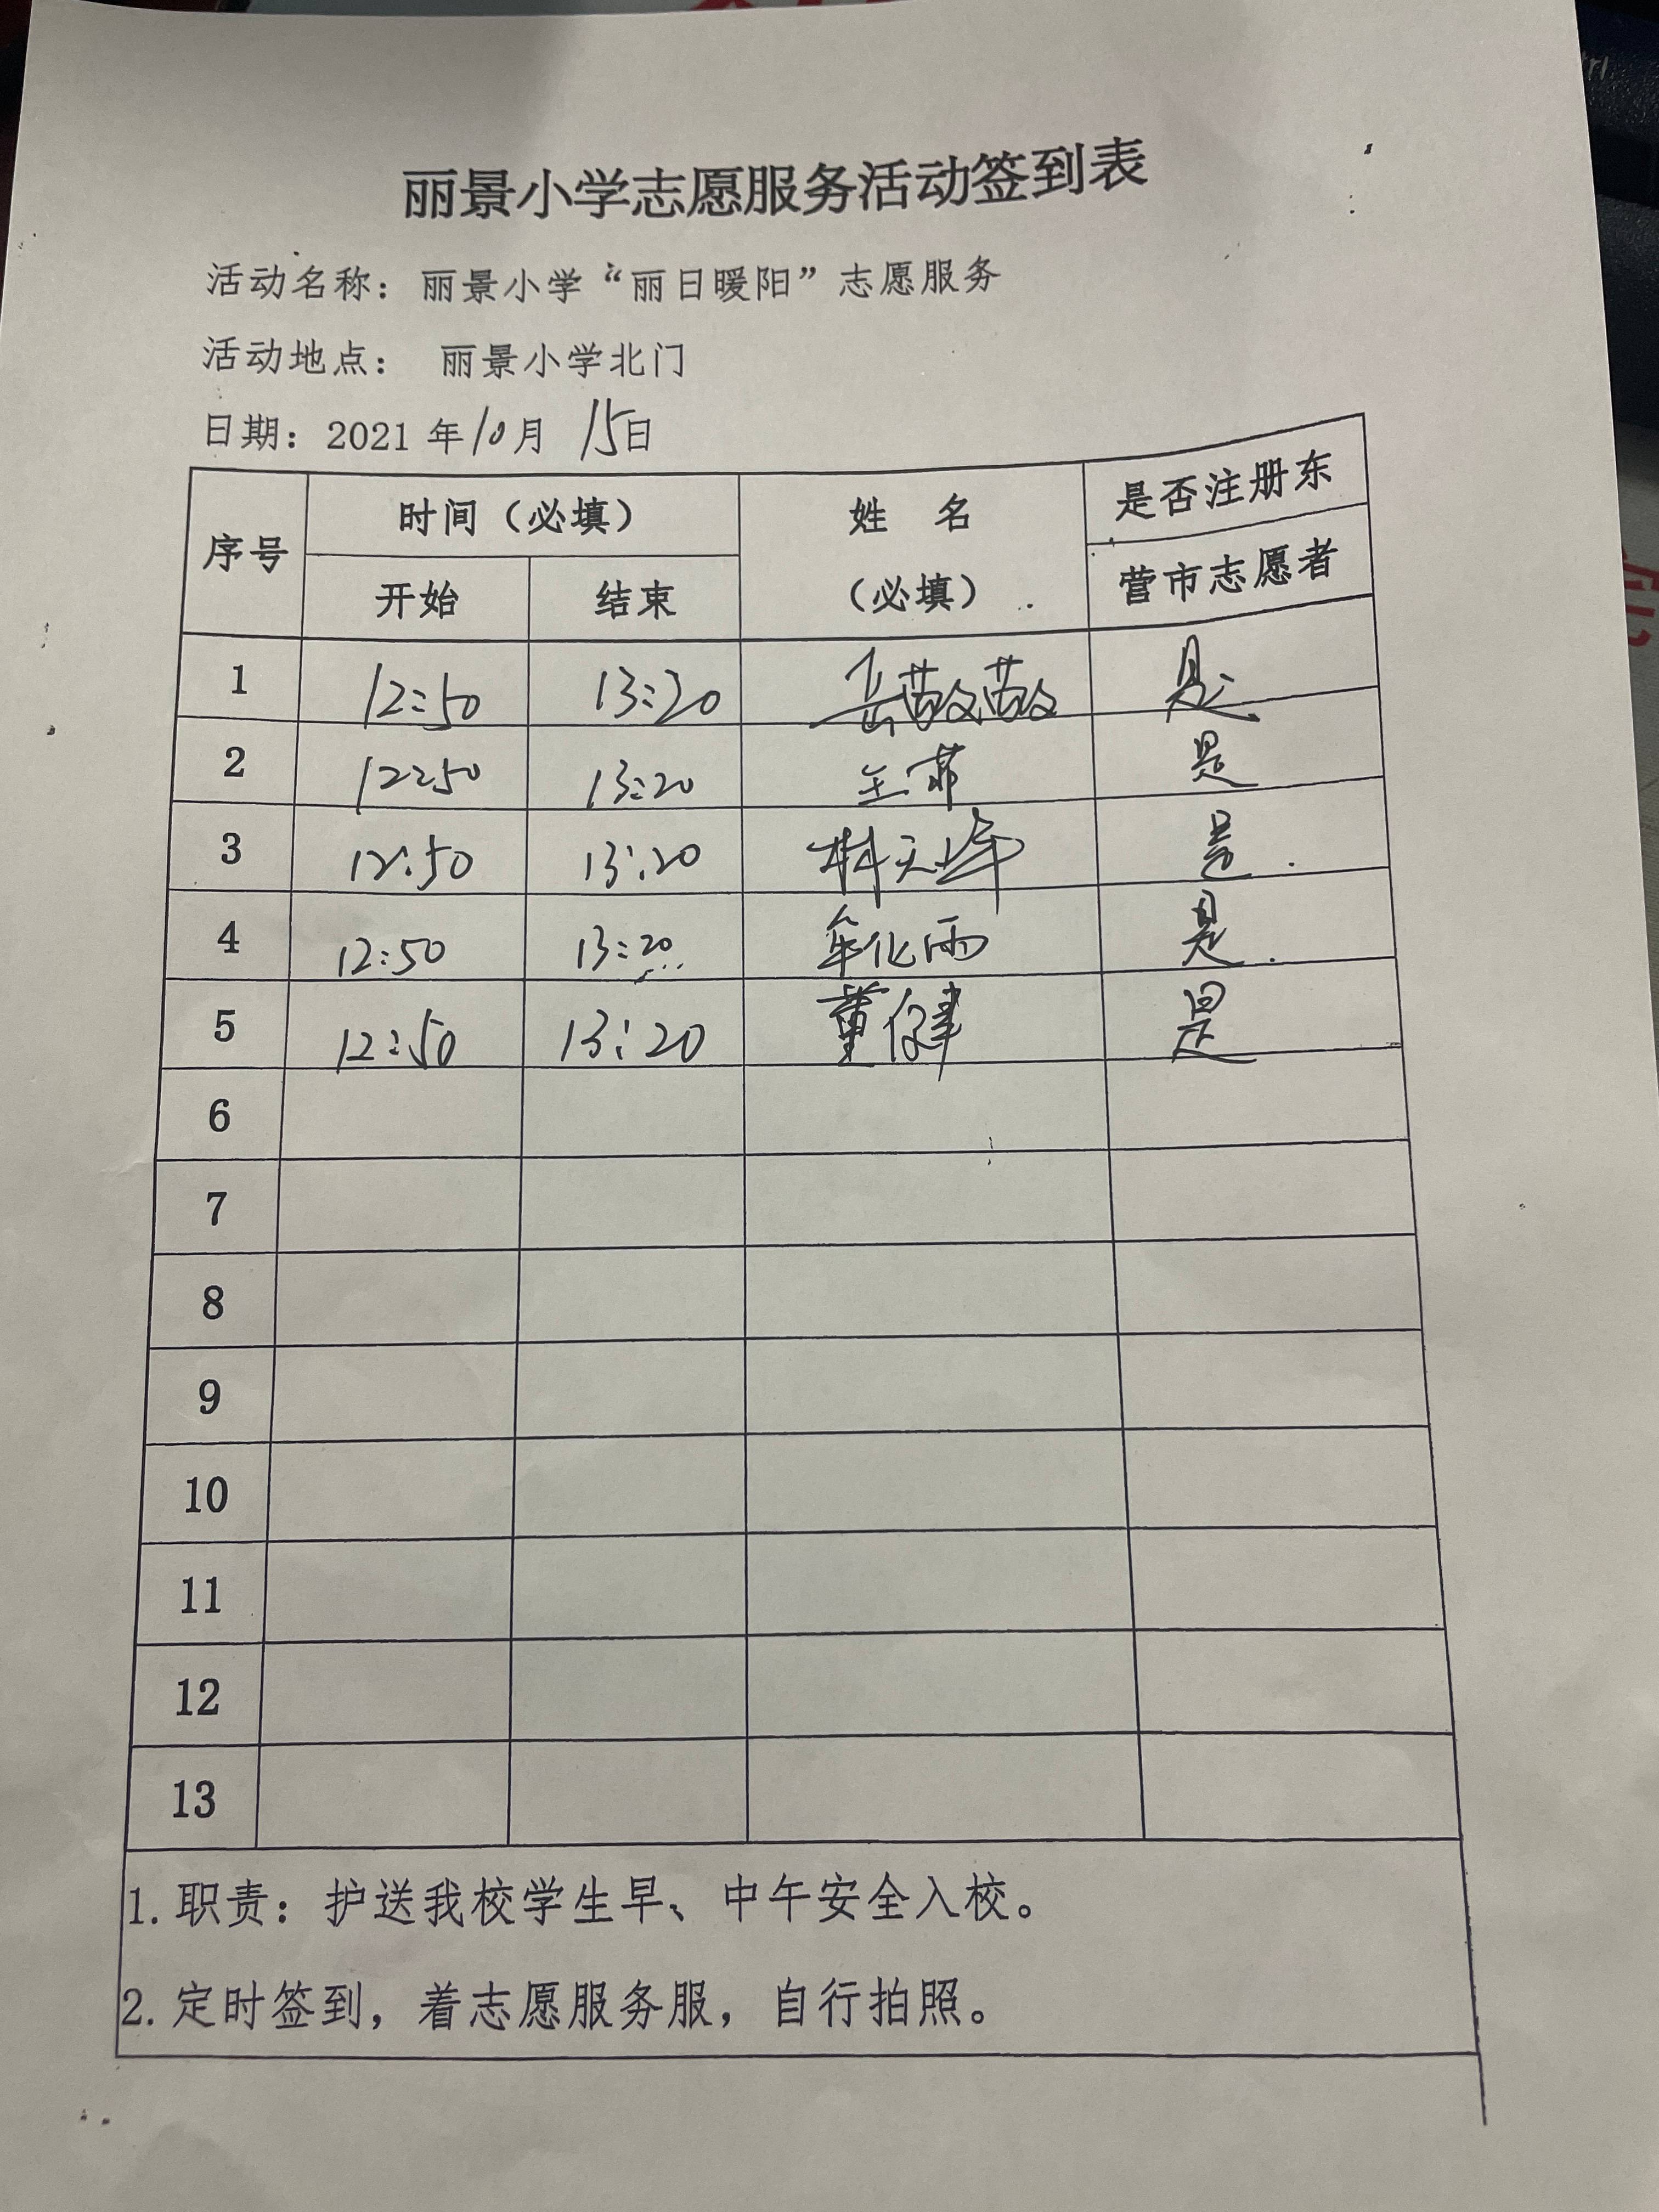 丽景小学志愿服务活动签到表
活动名称：丽景小学“丽日暖阳”志愿服务
活动地点： 丽景小学北门
日期：2021年10月 15日
序号 时间（必填） 姓 名 （必填） 是否注册东
开始 结束 营市志愿者
1 12:50 13:20 是
2 12:50 13:20 王菲 是
3 12:50 13:20 林天峰 是
4 12:50 13:20 牟化雨 是
5 12:50 13:20 董健 是
6
7
8
9
10
11
12
13
1. 职责：护送我校学生早、中午安全入校。
2. 定时签到，着志愿服务服，自行拍照。